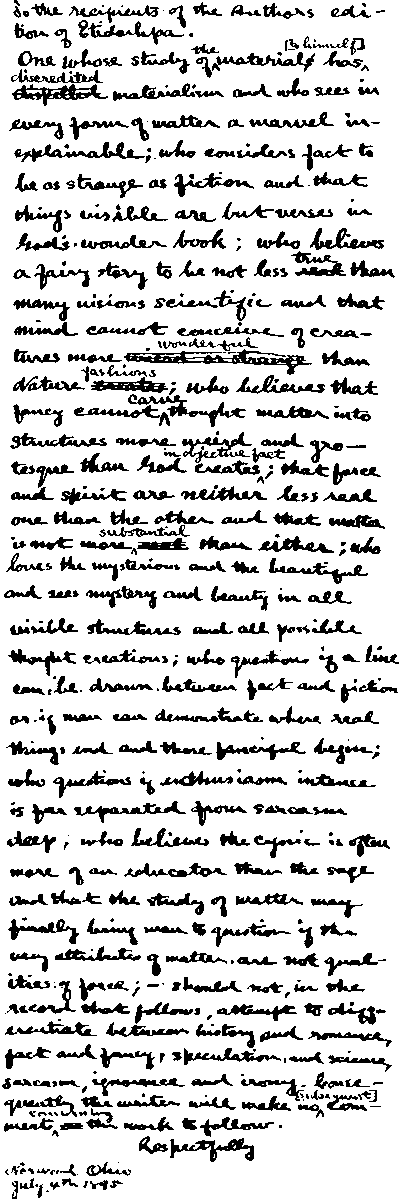 To the recipients of the Authors edi-
tion of Etidorhpa.
One whose study of the material has [himself]
discredited
dispelled materialism and who sees in
every form of matter a marvel in-
explainable; who considers fact to
be as strange as fiction and that
things visible are but verses in
God's wonder book; who believes
a fairy story to be not less true real than
many visions scientific and that
mind cannot conceive of crea-
wonderful
tures more weird or strange than
fashions
Nature creates; who believes that
carve
fancy cannot thought matter into
structures more weird and gro-
in objective fact
tesque than God creates; that force
and spirit are neither less real
one than the other and that matter
substantial
is not more real than either; who
loves the mysterious and the beautiful
and sees mystery and beauty in all
visible structures and all possible
thought creations; who questions if a line
can be drawn between fact and fiction
or if man can demonstrate where real
things end and those fanciful begin;
who questions if enthusiasm intense
is far separated from sarcasm
deep; who believes the cynic is often
more of an educator than the sage
and that the study of matter may
finally bring man to question if the
very attributes of matter are not qual-
ities of force; - should not, in the
record that follows, attempt to diff-
erentiate between history and romance,
fact and fancy, speculation, and science,
sarcasm, ignorance and irony. Conse-
[subsequent]
quently the writer will make no com-
concerning
ment the work to follow.
Respectfully
Norwood Ohio
July 4th 1895